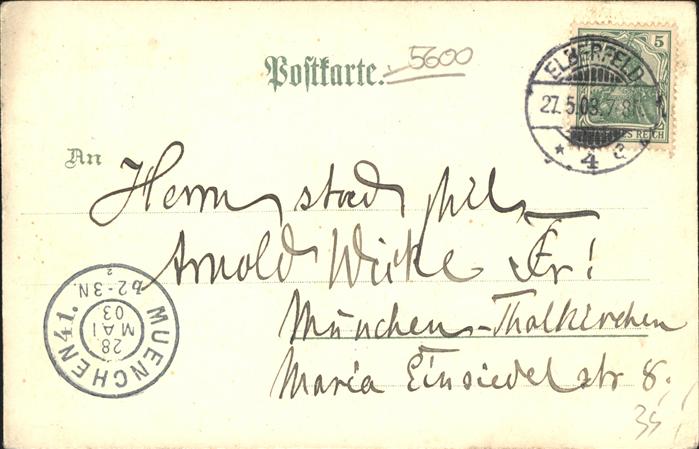 Postkarte.
5600
5
ELBERFELD
27.5.03. 7-8
* 4 a
REICH
An
Herrn stud phil
Arnold Wicke Fr!
München-Thalkirchen
Maria Einsiedel str 8.
35
MUENCHEN 41.
28.
MAI
03
2-3N.